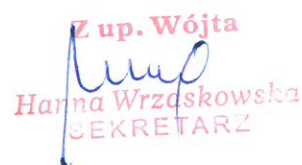 Z up. Wójta
Hanna Wrzaskowska
SEKRETARZ